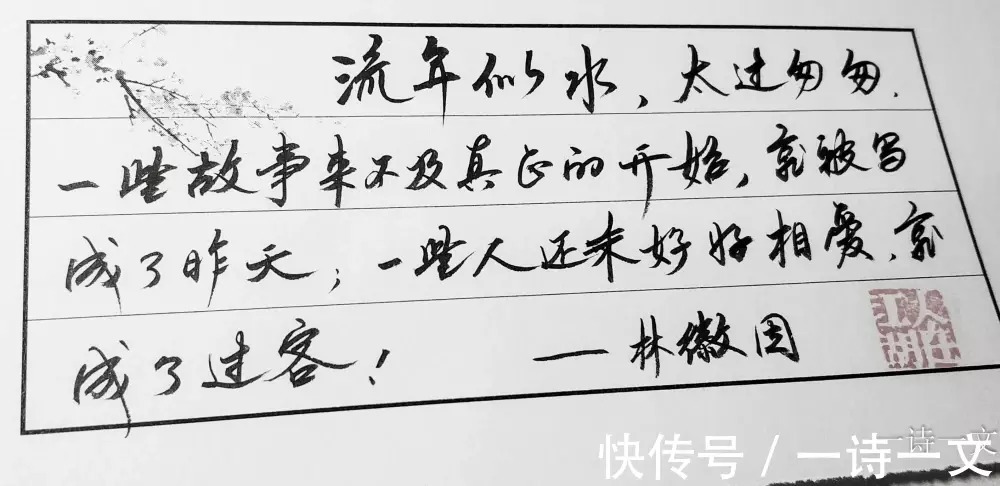 流年似水，太过匆匆.
一些故事来不及真正的开始，就被写
成了昨天；一些人还未好好相爱，就
成了过客！ ——林徽因
一诗一文
快传号／一诗一文